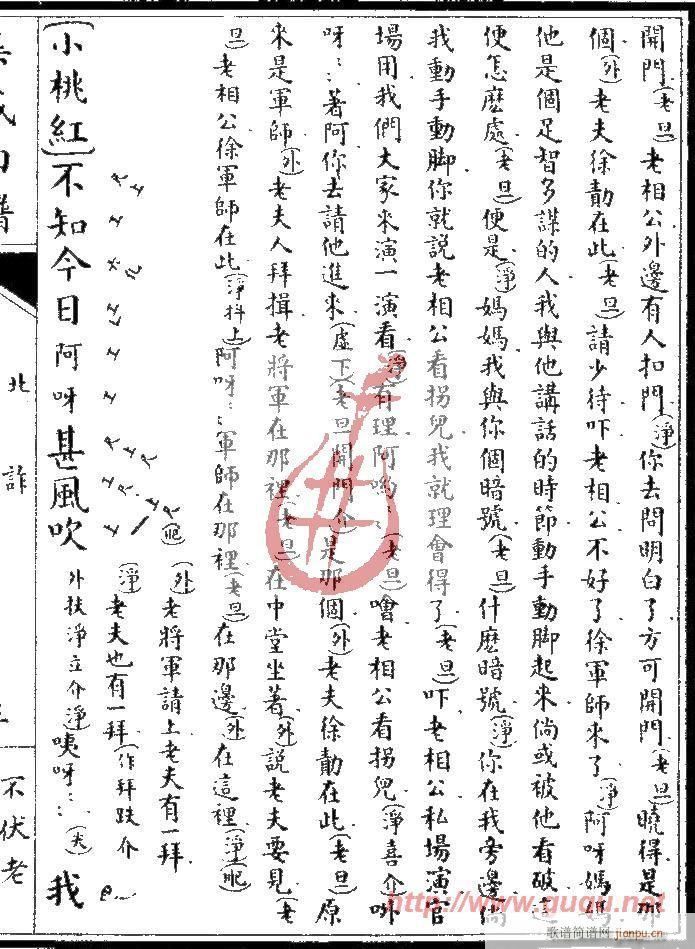 開門(老旦)老相公外邊有人扣門(淨)你去問明白了方可開門(老旦)曉得是那
個(外)老夫徐勣在此(老旦)請少待吓老相公不好了徐軍師來了(淨)阿呀媽媽
他是個足智多謀的人我與他講話的時節動手動腳起來倘或被他看破這
便怎麽處(老旦)便是(淨)媽媽我與你個暗號(老旦)什麽暗號(淨)你在我旁邊倘
我動手動腳你就說老相公看拐兒我就理會得了(老旦)吓老相公私場演官
場用我們大家來演一演看(淨)有理阿喲(老旦)噲老相公看拐兒(淨喜介)哧
呀著阿你去請他進來(虛下)(老旦開門介)是那個(外)老夫徐勣在此(老旦)原
來是軍師(外)老夫人拜揖老將軍在那裡(老旦)在中堂坐著(外)說老夫要見(老
旦)老相公徐軍師在此(淨抖上)阿呀軍師在那裡(老旦)在那邊(外)在這裡(淨)
(外)老將軍請上老夫有一拜
(淨)老夫也有一拜(作拜跌介
(小桃紅)不知今日阿呀甚風吹 外扶淨立介淨咦呀 我
北詐
不伏老
http://www.guqu.net
歌谱简谱网
jianpu.cn